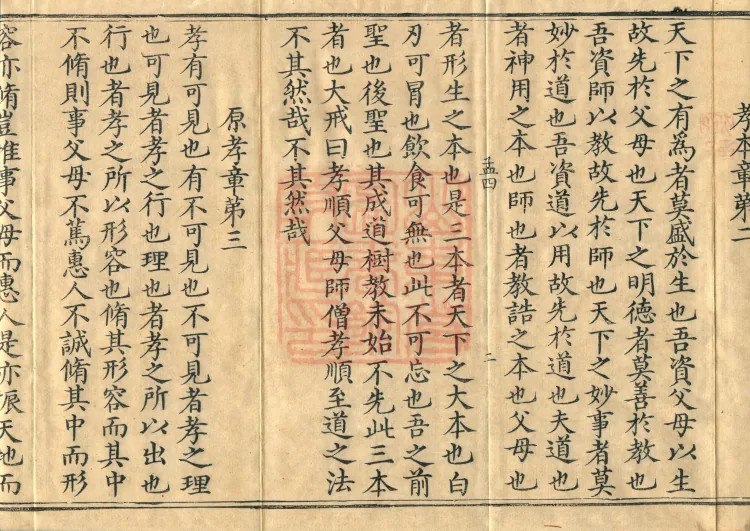 孝本章第二
天下之有爲者莫盛於生也吾資父母以生
故先於父母也天下之明德者莫善於教也
吾資師以教故先於師也天下之妙事者莫
妙於道也吾資道以用故先於道也夫道也
者神用之本也師也者教誥之本也父母也
孟四
二
者形生之本也是三本者天下之大本也白
刃可冒也飲食可無也此不可忘也吾之前
聖也後聖也其成道樹教未始不先此三本
者也大戒曰孝順父母師僧孝順至道之法
不其然哉不其然哉
原孝章第三
孝有可見也有不可見也不可見者孝之理
也可見者孝之行也理也者孝之所以出也
行也者孝之所以形容也脩其形容而其中
不脩則事父母不篤惠人不誠脩其中而形
容亦脩豈惟事父母而惠人是亦振天地而